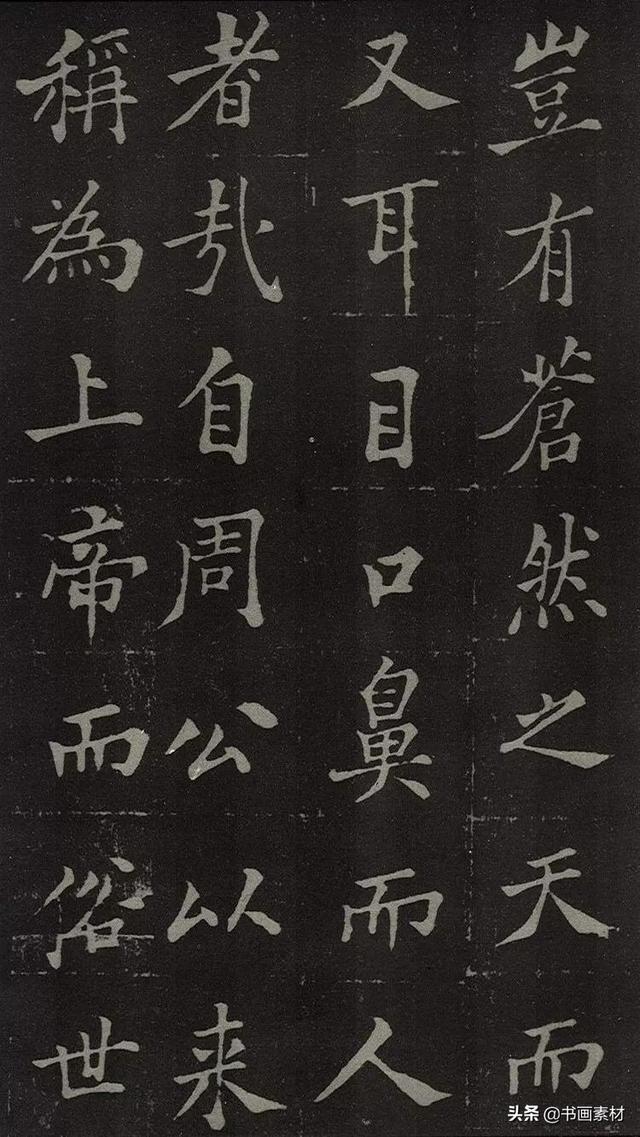 豈有蒼然之天而
又耳目口鼻而人
者哉自周公以来
稱為上帝而俗世
头条 @书画素材